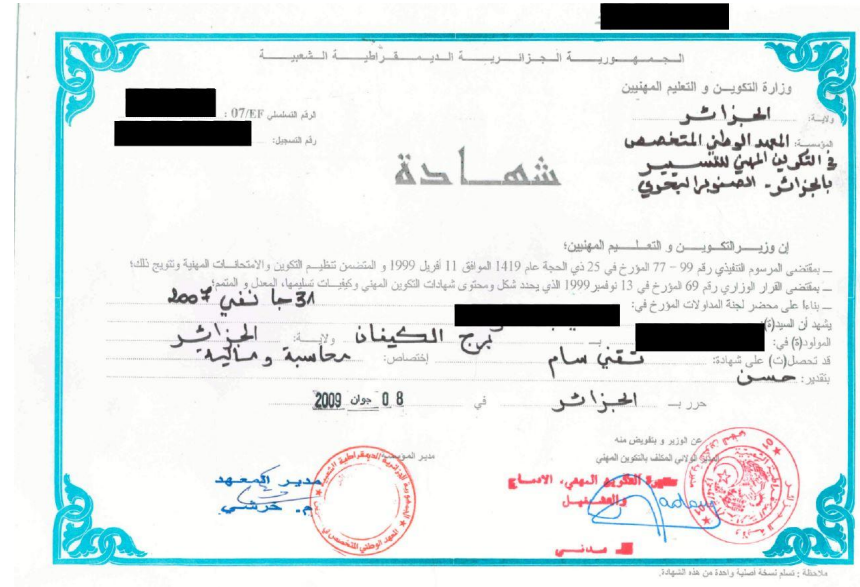 الجمهورية الجزائرية الديمقراطية الشعبية
وزارة التكوين و التعليم المهنيين
ولاية: الجزائر
الرقم التسلسلي 07/EF :
المؤسسة: المعهد الوطني المتخصص
رقم التسجيل:
في التكوين المهني للتسيير
بالجزائر - الصنوبر البحري
شهادة
إن وزير التكوين و التعليم المهنيين؛
ــ بمقتضى المرسوم التنفيذي رقم 99 – 77 المؤرخ في 25 ذي الحجة عام 1419 الموافق 11 أفريل 1999 و المتضمن تنظيم التكوين والامتحانات المهنية وتتويج ذلك؛
ــ بمقتضى القرار الوزاري رقم 69 المؤرخ في 13 نوفمبر 1999 الذي يحدد شكل ومحتوى شهادات التكوين المهني وكيفيات تسليمها، المعدل و المتمم؛
ــ بناءا على محضر لجنة المداولات المؤرخ في: 31 جانفي 2007
يشهد أن السيد(ة):
المولود(ة) في: بـ برج الكيفان ولاية: الجزائر
قد تحصل(ت) على شهادة: تقني سام إختصاص: محاسبة و مالية
بتقدير: حسن
حرر بـ الجزائر في 08 جوان 2009
عن الوزير و بتفويض منه
المدير الولائي المكلف بالتكوين المهني
مدير المؤسسة
مدير المعهد
التكوين المهني، الادماج
م. خرشي
مدني
ملاحظة : تسلم نسخة أصلية واحدة من هذه الشهادة.